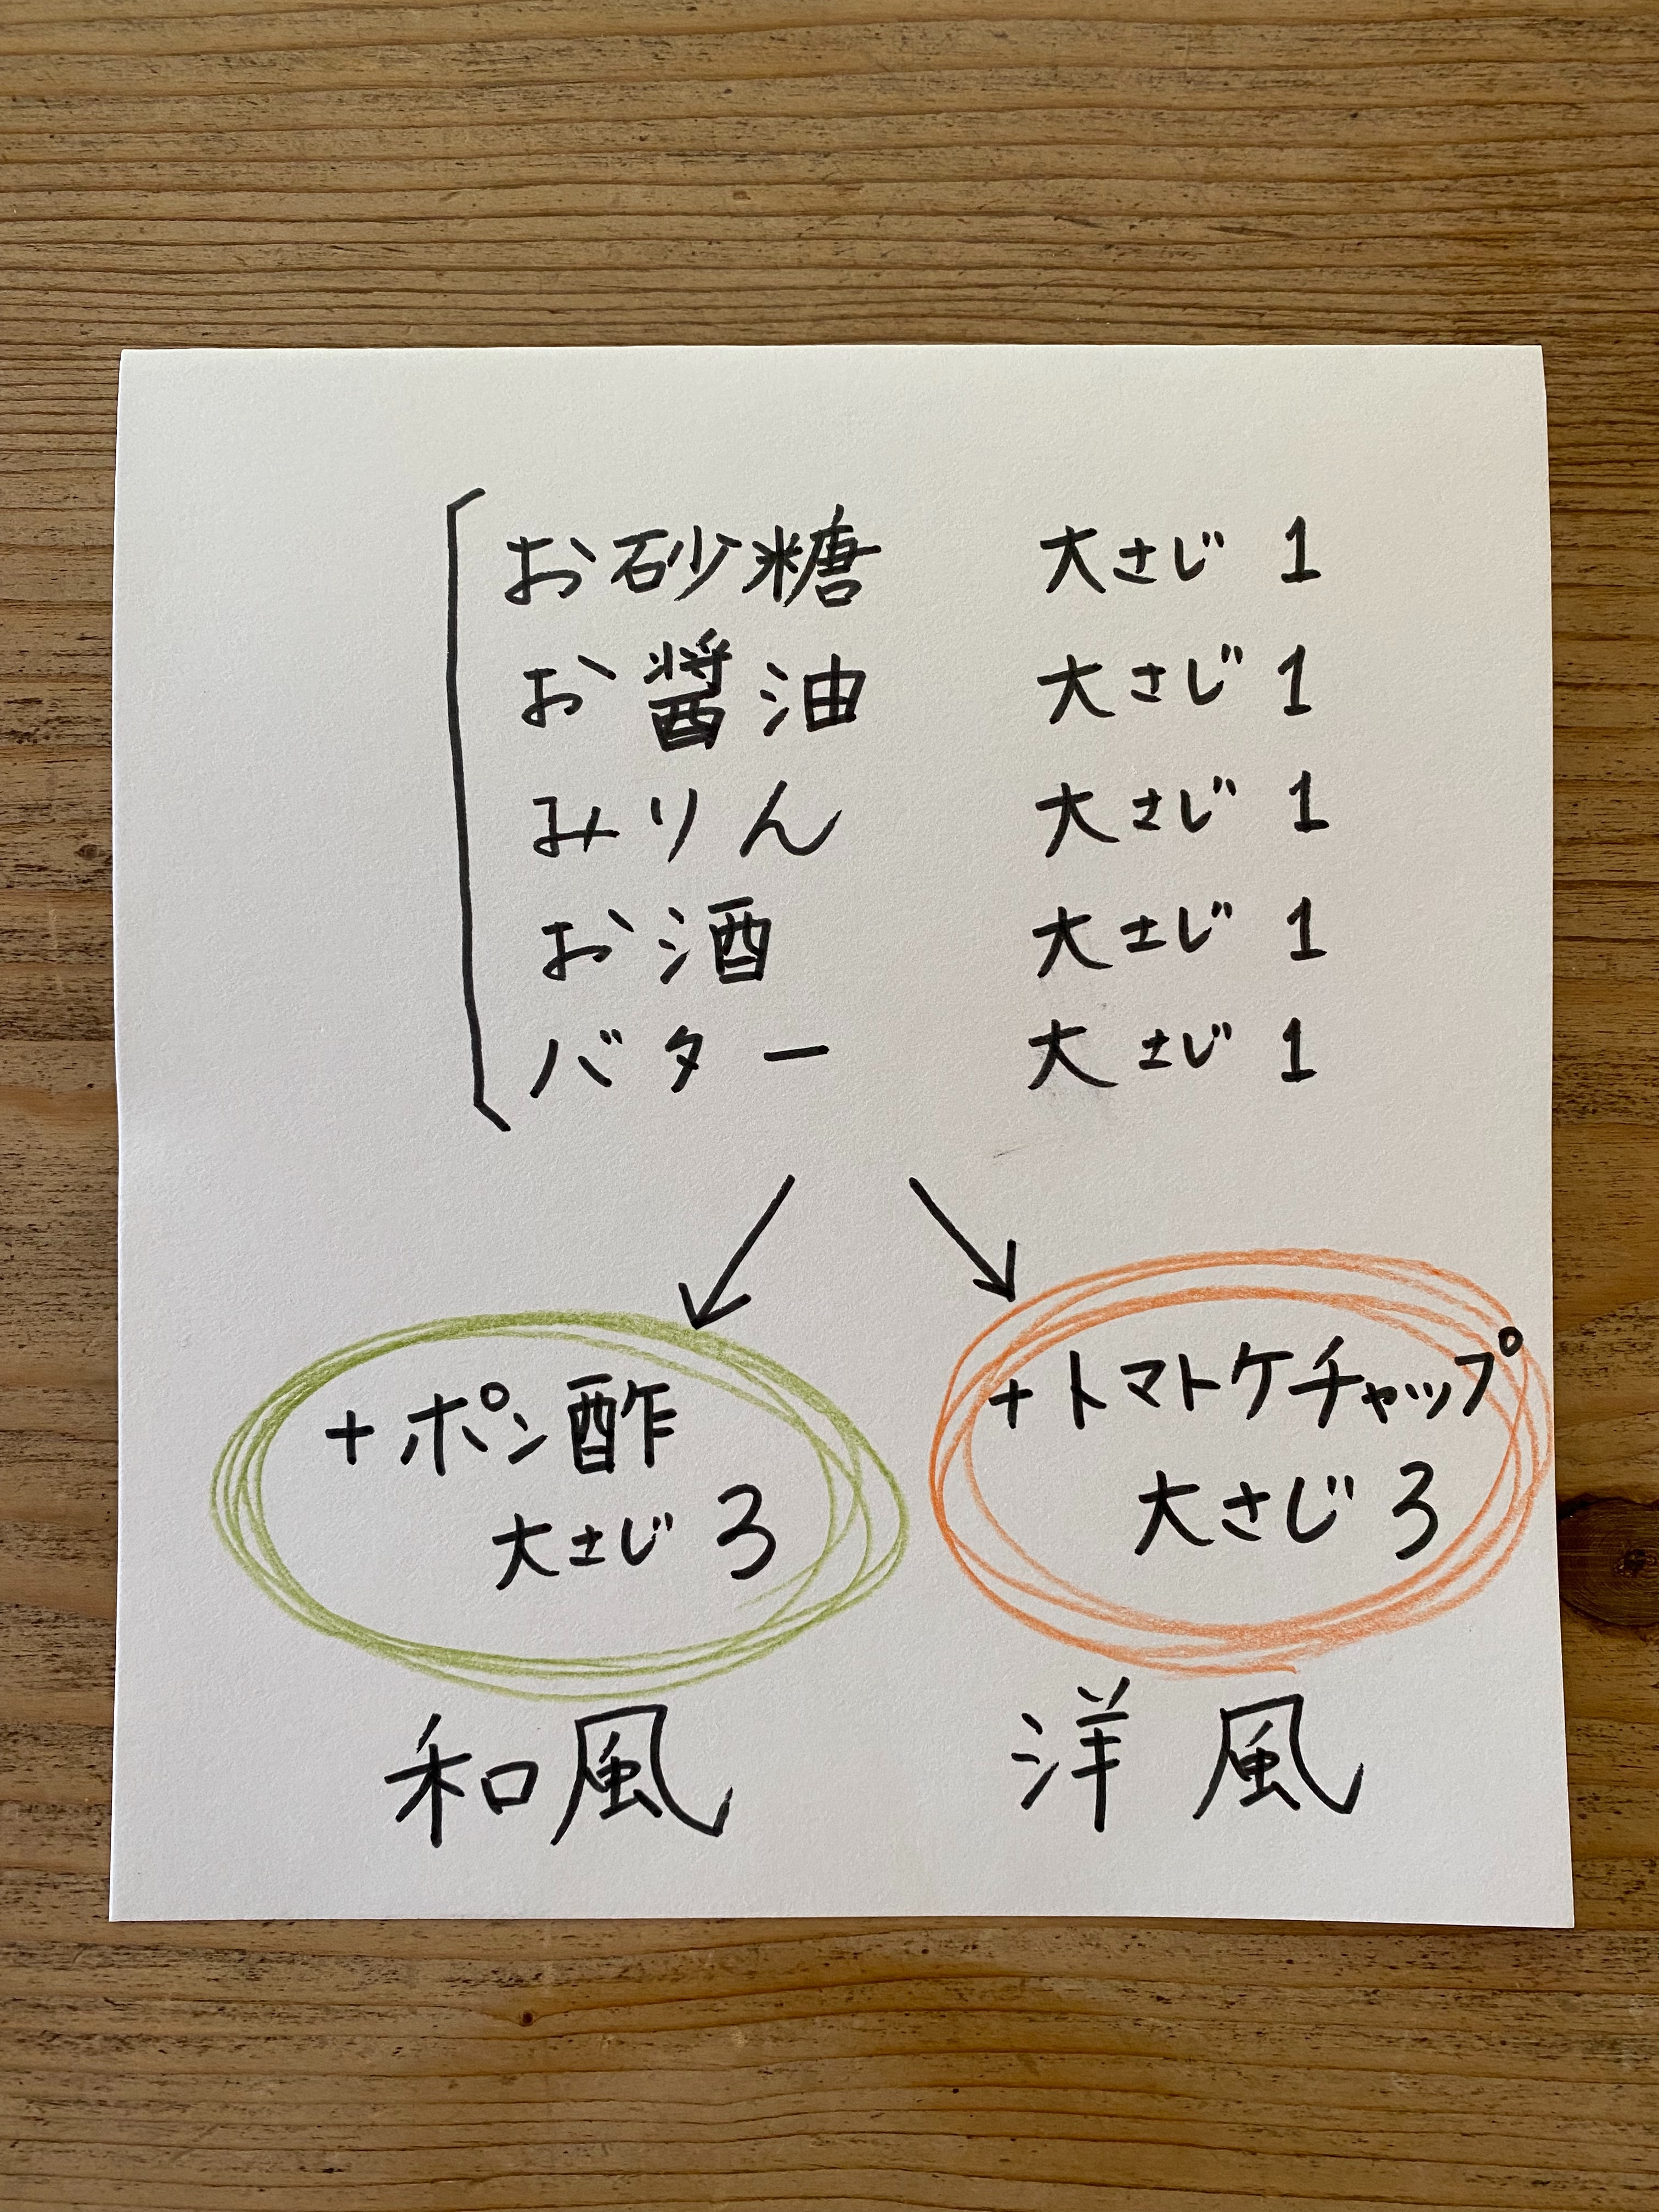 お砂糖 大さじ 1
お醤油 大さじ 1
みりん 大さじ 1
お酒 大さじ 1
バター 大さじ 1
+ポン酢
大さじ 3
和風
+トマトケチャップ
大さじ 3
洋風